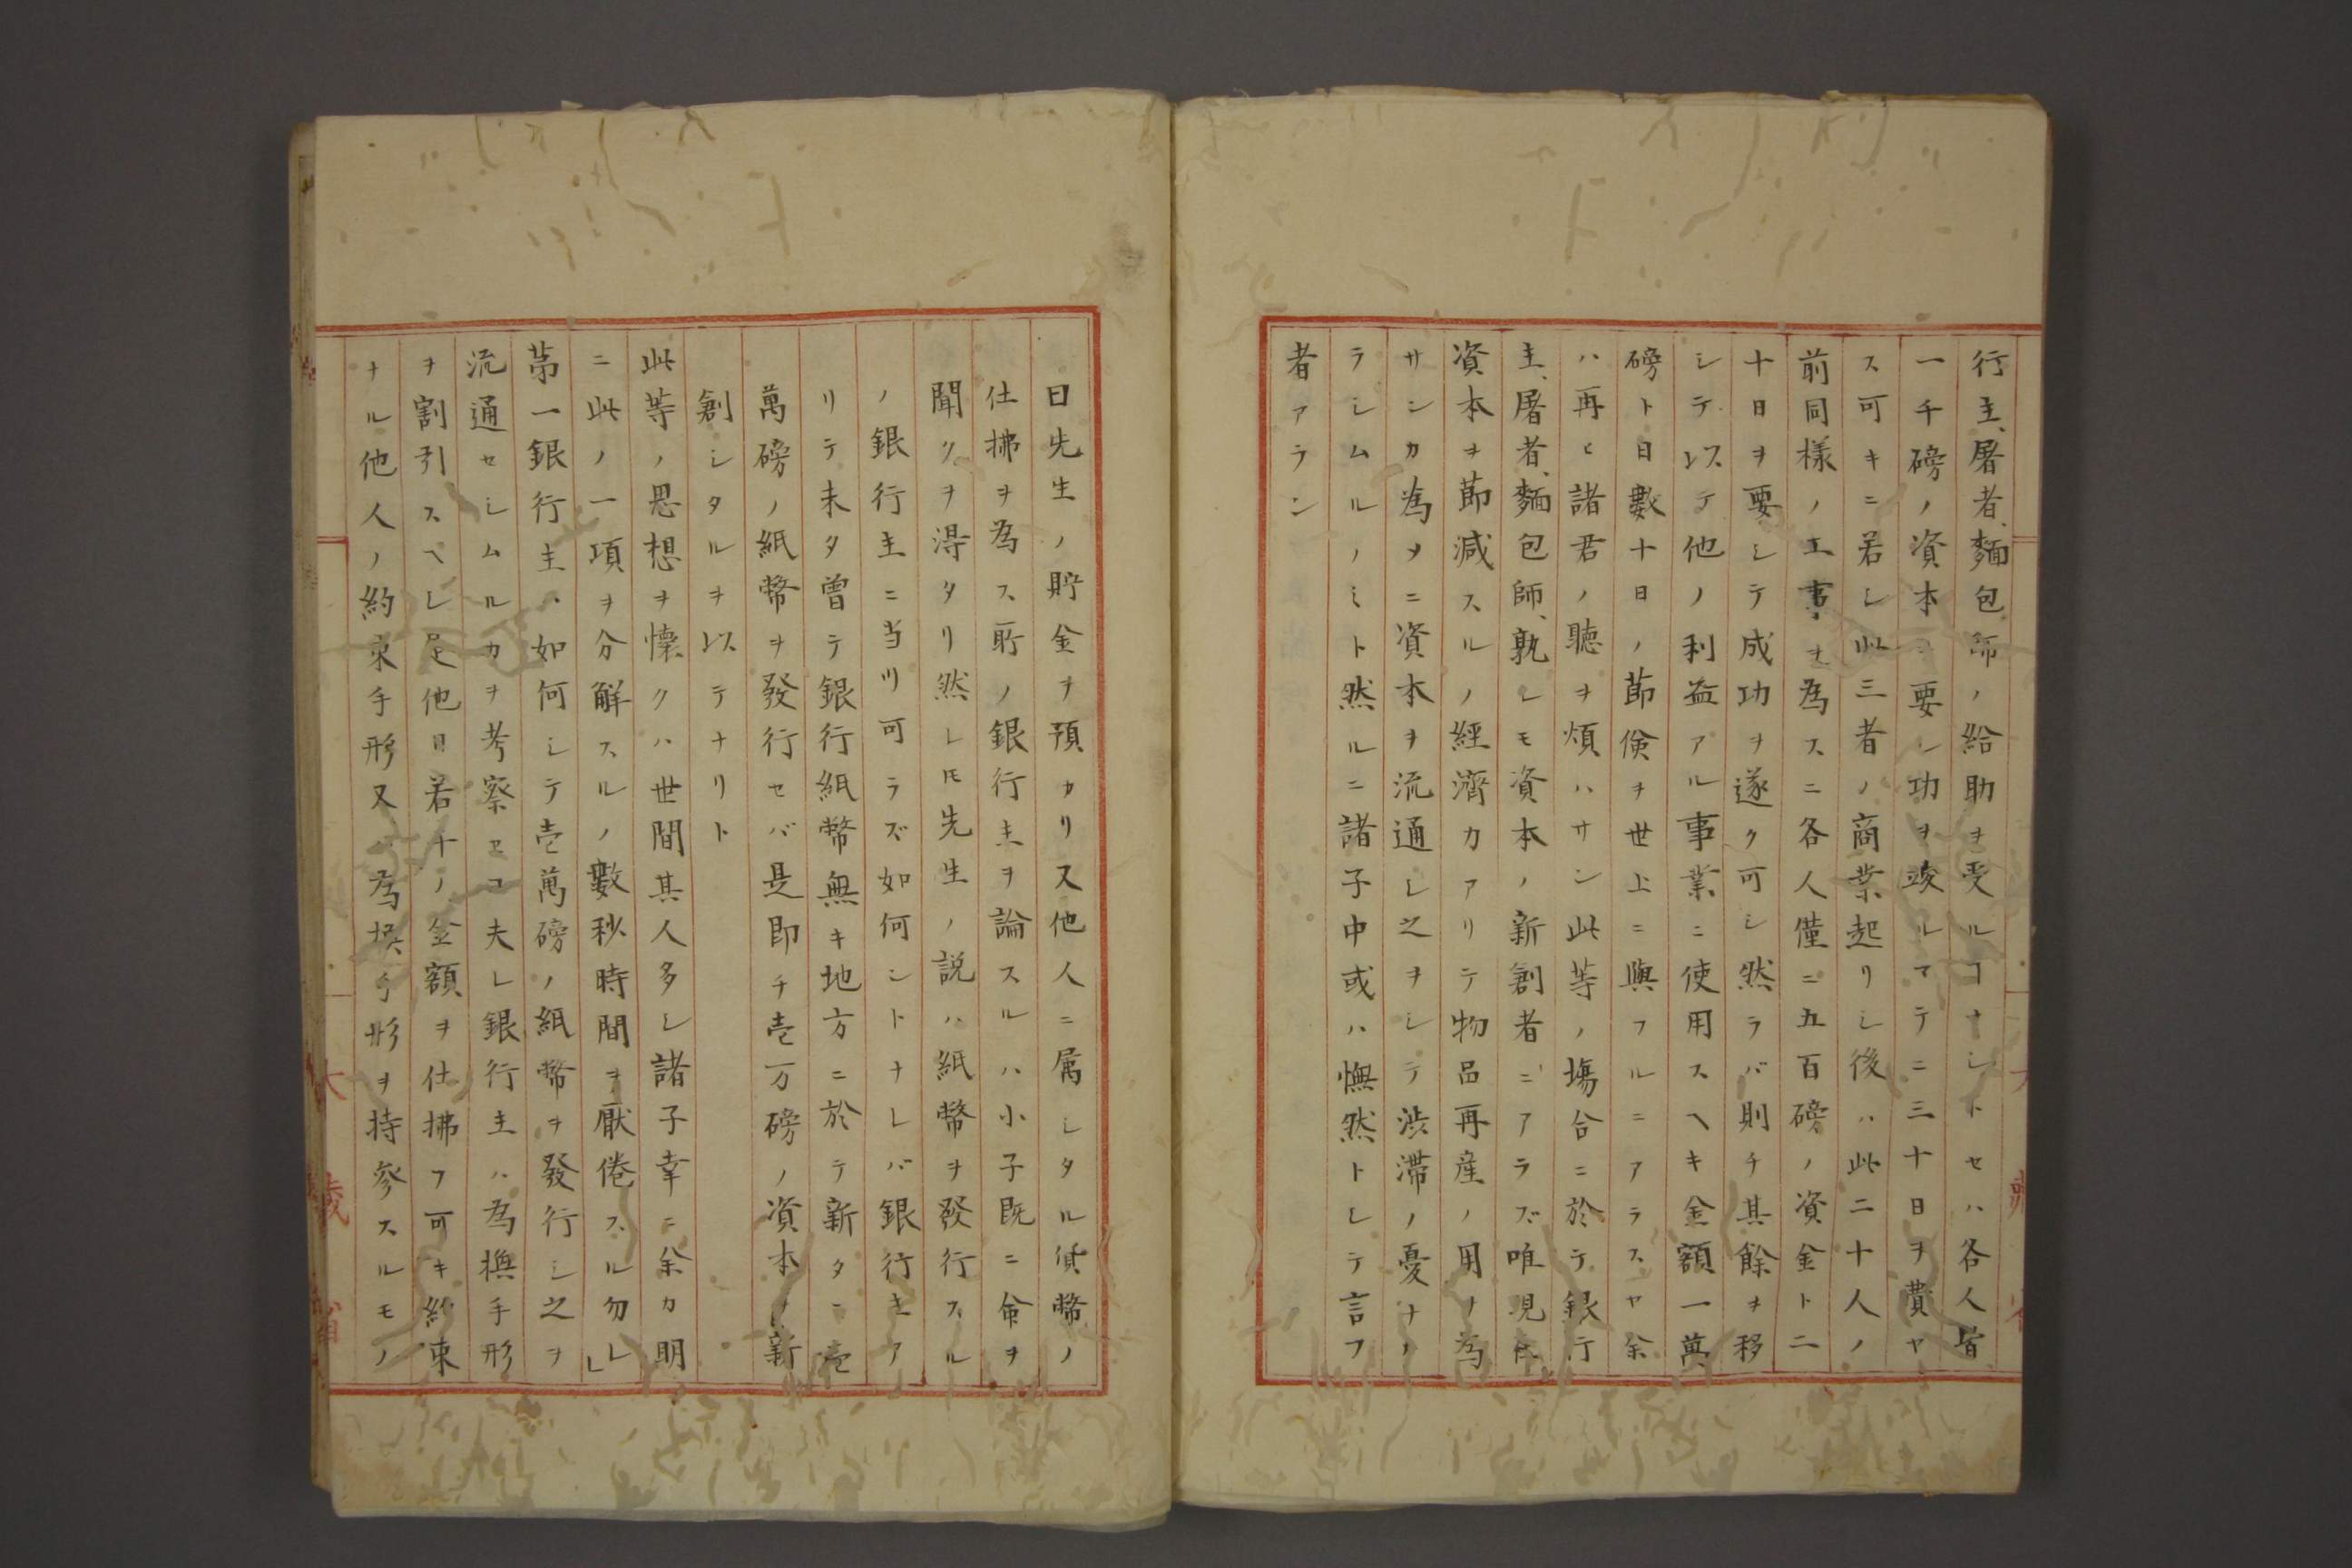 行主、屠者、麵包師ノ給助ヲ受ルヿナシトセハ各人皆
一千磅ノ資本ヲ要シ功ヲ竣ルマテニ三十日ヲ費ヤ
ス可キニ若シ此三者ノ商業起リシ後ハ此二十人ノ
前同様ノ工事ヲ為スニ各人僅ニ五百磅ノ資金ト二
十日ヲ要シテ成功ヲ遂ク可シ然ラバ則チ其餘ヲ移
シテ以テ他ノ利益アル事業ニ使用スヘキ金額一萬
磅ト日數十日ノ節倹ヲ世上ニ與フルニアラスヤ余
ハ再ヒ諸君ノ聴ヲ煩ハサン此等ノ塲合ニ於テ銀行
主、屠者、麵包師、孰レモ資本ノ新創者ニアラズ唯現在
資本ヲ節減スルノ經濟カアリテ物品再産ノ用ヲ為
サンカ為メニ資本ヲ流通シ之ヲシテ渋滞ノ憂ナカ
ラシムルノミト然ルニ諸子中或ハ憮然トシテ言フ
者アラン
曰先生ノ貯金ヲ預カリ又他人ニ属シタル貨幣ノ
仕拂ヲ為ス所ノ銀行主ヲ論スルハ小子既ニ命ヲ
聞クヲ得タリ然レ𪜈先生ノ説ハ紙幣ヲ發行スル
ノ銀行主ニ当リ可ラズ如何ントナレバ銀行主ア
リテ未タ曽テ銀行紙幣無キ地方ニ於テ新タニ壱
萬磅ノ紙幣ヲ發行セバ是即チ壱万磅ノ資本ヲ新
創シタルヲ以テナリト
此等ノ思想ヲ懐クハ世間其人多シ諸子幸ニ余カ明
ニ此ノ一項ヲ分解スルノ數秒時間ヲ厭倦スル勿レ
苐一銀行主ハ如何シテ壱萬磅ノ紙幣ヲ發行シ之ヲ
流通セシムルカヲ考察セヨ夫レ銀行主ハ為換手形
ヲ割引スヘシ是他日若干ノ金額ヲ仕拂フ可キ約束
ナル他人ノ約束手形又ハ為換手形ヲ持參スルモノ